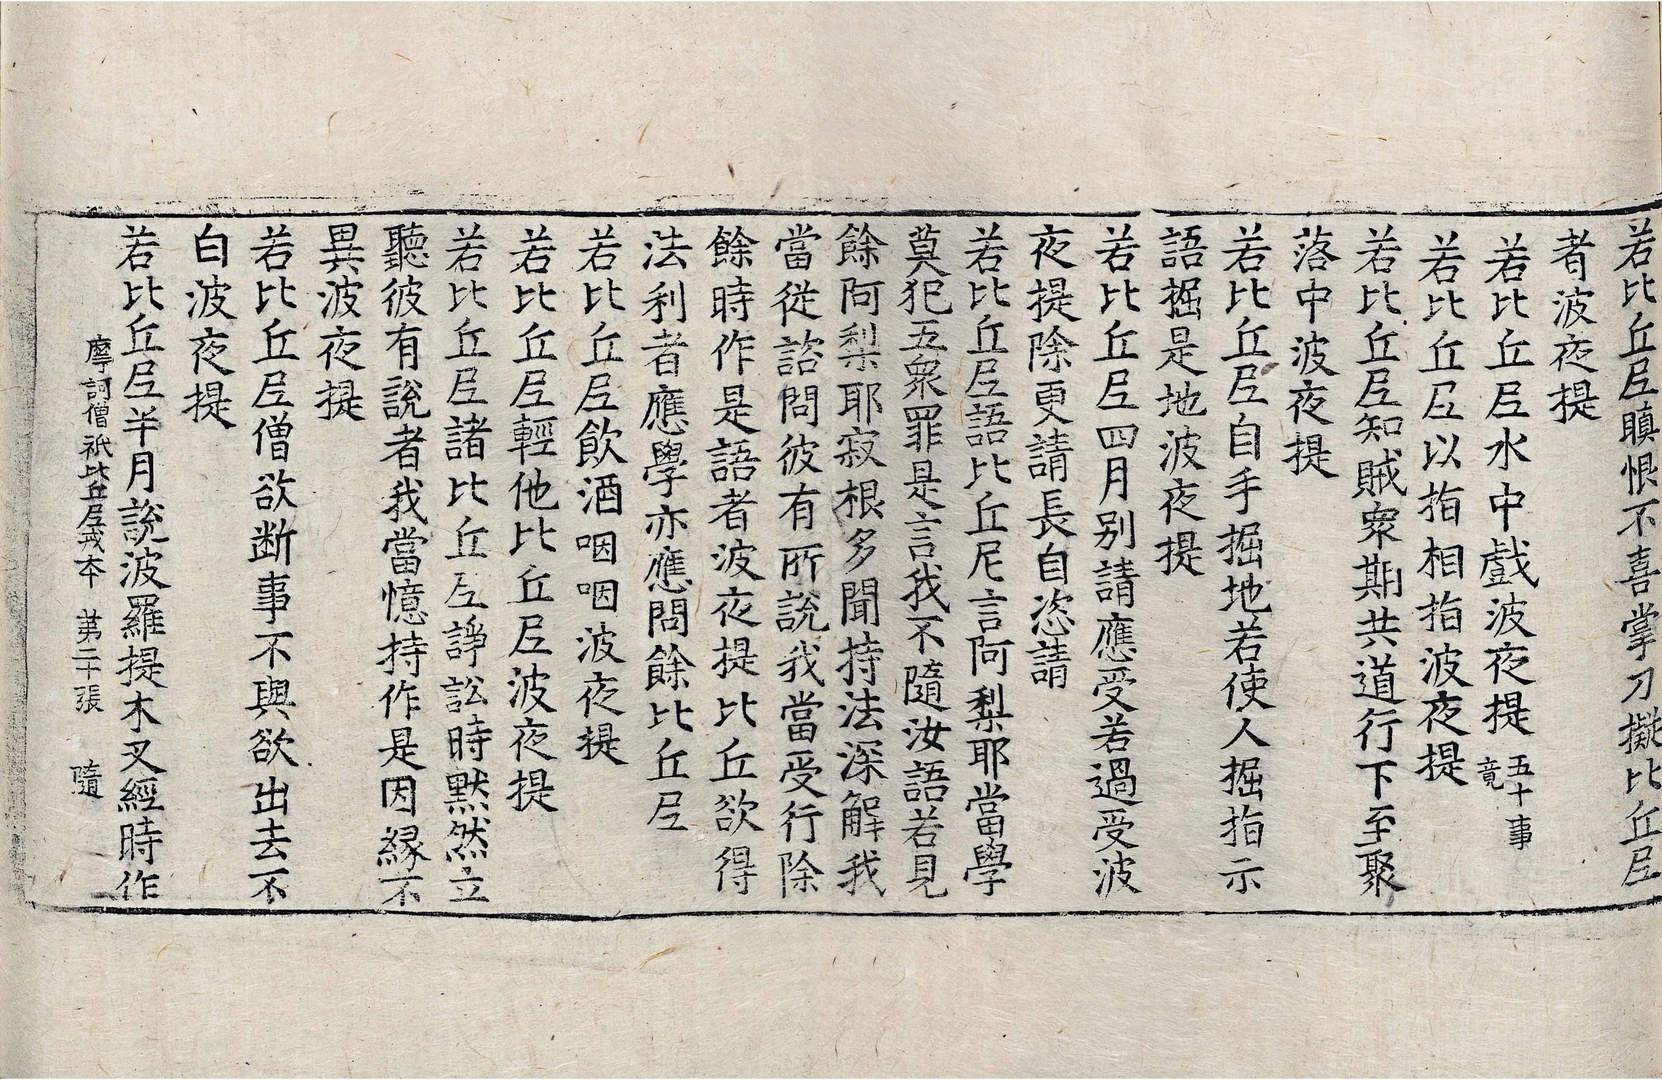 若比丘尼瞋恨不喜掌刀擬比丘尼
者波夜提
若比丘尼水中戲波夜提 五十事竟
若比丘尼以指相指波夜提
若比丘尼知賊衆期共道行下至聚
落中波夜提
若比丘尼自手掘地若使人掘指示
語掘是地波夜提
若比丘尼四月别請應受若過受波
夜提除更請長自恣請
若比丘尼語比丘尼言阿梨耶當學
莫犯五衆罪是言我不隨汝語若見
餘阿梨耶寂根多聞持法深解我
當從諮問彼有所說我當受行除
餘時作是語者波夜提比丘欲得
法利者應學亦應問餘比丘尼
若比丘尼飲酒咽咽波夜提
若比丘尼輕他比丘尼波夜提
若比丘尼諸比丘尼諍訟時默然立
聽彼有說者我當憶持作是因緣不
異波夜提
若比丘尼僧欲断事不與欲出去不
白波夜提
若比丘尼半月說波羅提木叉經時作
摩訶僧祇比丘尼戒本 第二十張 隨